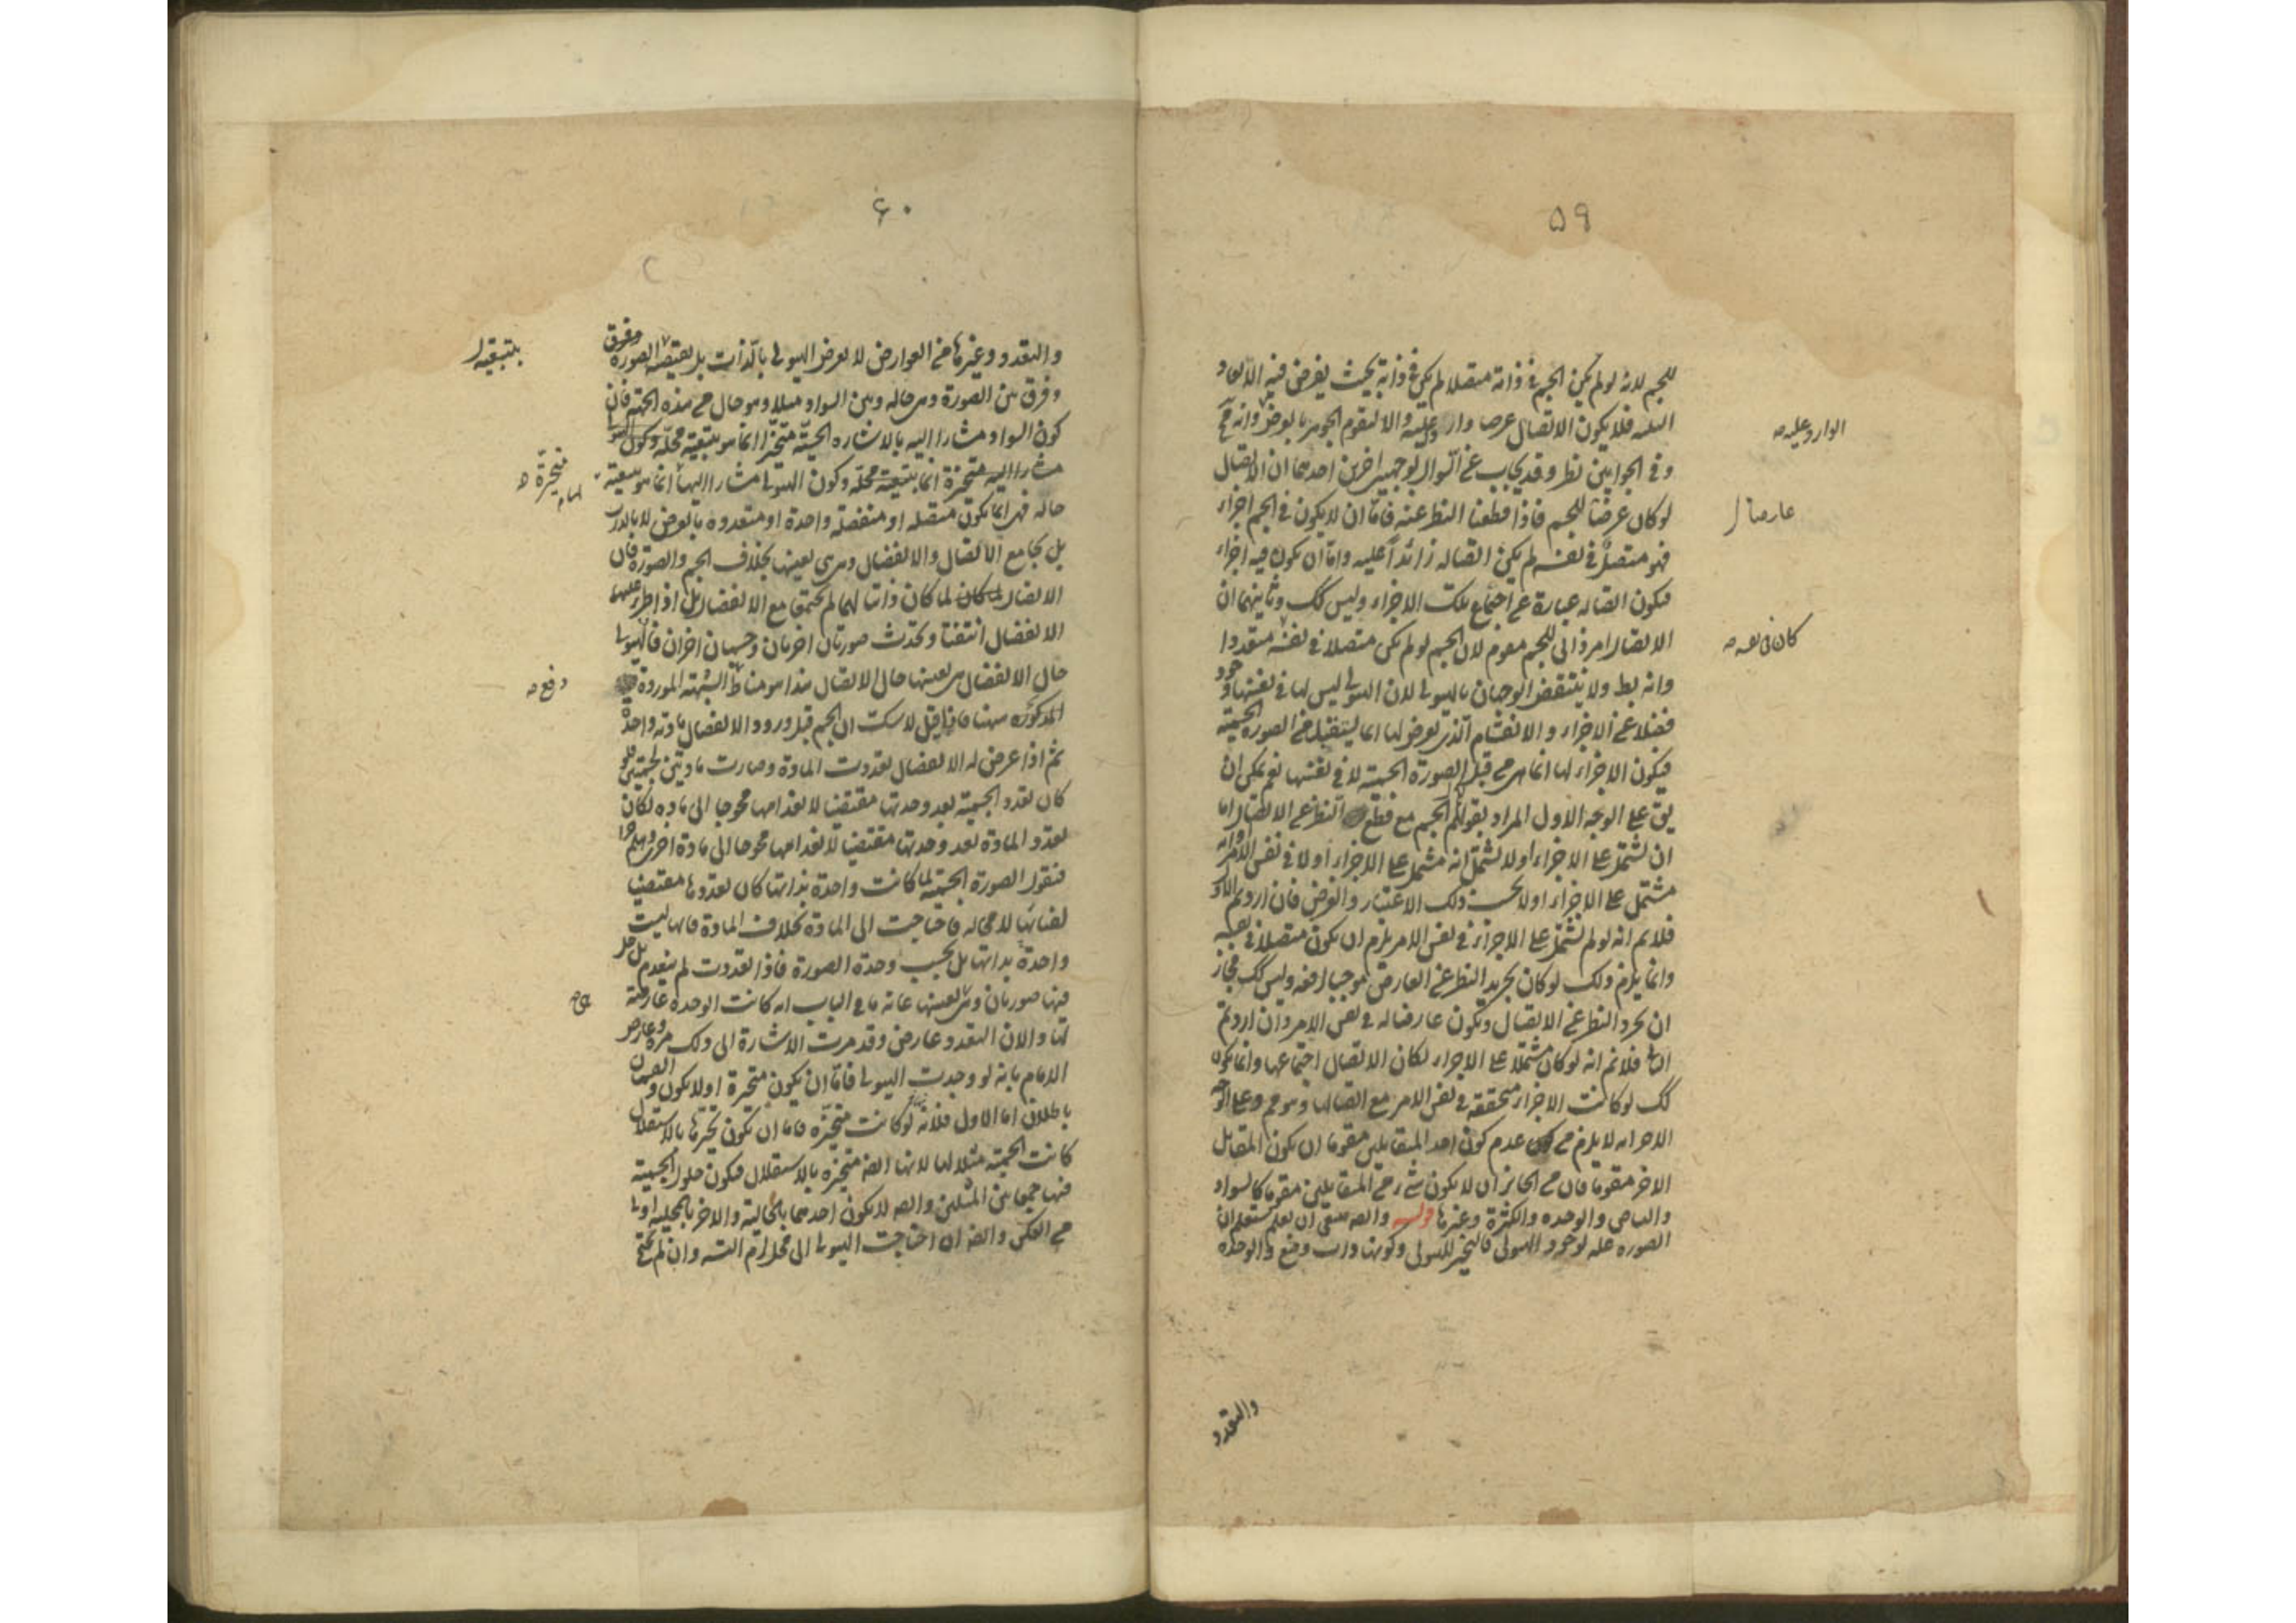 ۵۹
للجسم لانه لو لم يكن الجسم في ذاته متصلا لم يكن في ذاته بحيث يفرض فيه الابعاد
الثلثه فلا يكون الاتصال عرضا وارد عليه والا لتقوم الجوهر بالعرض وانه مح
الوارد عليه صه
وفي الجوابين نظر وقد يجاب عن السوال بوجهين اخرين احدهما ان الاتصال
لو كان عرضا للجسم فاذا قطعنا النظر عنه فاما ان لا يكون في الجسم اجزاء
عارضا ل
فهو متصل في نفسه لم يكن اتصاله زائدا عليه واما ان يكون فيه اجزاء
فيكون اتصاله عبارة عن اجتماع تلك الاجزاء وليس كك وثانيهما ان
الاتصال امر ذاتي للجسم مقوم لان الجسم لو لم يكن متصلا في نفسه متعددا
كان في نفسه صه
وانه بط ولا ينتقض الوجهان بالهيولى لان الهيولى ليس لها في نفسها وجود
فضلا عن الاجزاء والانقسام الذي يعرض لها انما يستفيد من الصورة الجسمية
فيكون الاجزاء لها انما هي من قبل الصورة الجسمية لا في نفسها نعم يمكن ان
يق على الوجه الاول المراد بقولكم الجسم مع قطع النظر عن الاتصال اما
ان يشتمل على الاجزاء او لا يشتمل انه مشتمل على الاجزاء او لا في نفس الامر او انه
مشتمل على الاجزاء او لا بحسب ذلك الاعتبار والفرض فان اردتم الاول
فلانم انه لو لم يشتمل على الاجزاء في نفس الامر يلزم ان يكون متصلا في نفسه
وانما يلزم ذلك لو كان تجريد النظر عن العارض موجبا لرفعه وليس كك فجاز
ان يجرد النظر عن الاتصال ويكون عارضا له في نفس الامر وان اردتم
الثاني فلانم انه لو كان مشتملا على الاجزاء لكان الاتصال اجتماعها وانما يكون
كك لو كانت الاجزاء متحققة في نفس الامر مع اتصالها وهو مم وعلى الوجه
الاخر انه لا يلزم من عدم كون احد المتقابلين مقوما ان يكون المقابل
الاخر مقوما فان من الجائز ان لا يكون شيء من المتقابلين مقوما كالسواد
والبياض والوحدة والكثرة وغيرها قوله والصه ينبغي ان يعلم ستعلم ان
الصورة علة لوجود الهيولى فالتحيز للهيولى وكونها ذات وضع والوحدة
والتعدد
۶۰
والتعدد وغيرها من العوارض لا يعرض الهيولى بالذات بل بتبعية الصورة وفرق
بتبعية ل
وفرق بين الصورة وهي حاله وبين السواد مثلا وهو حال من هذه الجهة فان
كون السواد مشارا اليه بالاشارة الحسية متحيزا انما هو بتبعية محله وكون الهيولى
مشارا اليه متحيزة انما بتبعية محله وكون الهيولى مشارا اليها انما هو بتبعية
متحيزة
حاله فهي انما يكون متصلة او منفصلة واحدة او متعددة بالعرض لا بالذات
بل يجامع الاتصال والانفصال وهي هي بعينها بخلاف الجسم والصورة فان
الاتصال لما كان ذاتيا لهما لم يجتمع مع الانفصال بل اذا طرء عليهما
الانفصال انتفتا وتحدث صورتان اخريان وجسمان اخران فالهيولى
حال الانفصال هي بعينها حال الاتصال هذا هو مناط الشبهة الموردة
دفع صه
المذكورة ههنا فاذا قيل لا شك ان الجسم قبل ورود الانفصال مادته واحدة
ثم اذا عرض له الانفصال تعددت المادة وصارت مادتين لجسمين فلو
كان تعدد الجسمية بعد وحدتها مقتضيا لانعدامها محوجا الى مادة لكان
تعدد المادة بعد وحدتها مقتضيا لانعدامها محوجا الى مادة اخرى وهلم جرا
فنقول الصورة الجسمية لما كانت واحدة بذاتها كان تعددها مقتضيا
لفنائها لا محاله فاحتاجت الى المادة بخلاف المادة فانها ليست
واحدة بذاتها بل بحسب وحدة الصورة فاذا تعددت لم ينعدم بل حل
فيها صورتان وهي بعينها غاية ما في الباب انه كانت الوحدة عارضة
لها والان التعدد عارض وقد مرت الاشارة الى ذلك مرة وعارض
الامام بانه لو وجدت الهيولى فاما ان يكون متحيزة او لا يكون والقسمان
باطلان اما الاول فلانه لو كانت متحيزة فاما ان يكون تحيزها بالاستقلال
كانت الجسمية مثلا لها لانها ايضه متحيزه بالاستقلال فيكون حلول الجسمية
فيها جمعا بين المثلين وايضه لا يكون احدهما بالحالية والاخر بالمحلية اولى
من العكس وايضه ان احتاجت الهيولى الى محل لزم التسه وان لم تحتج